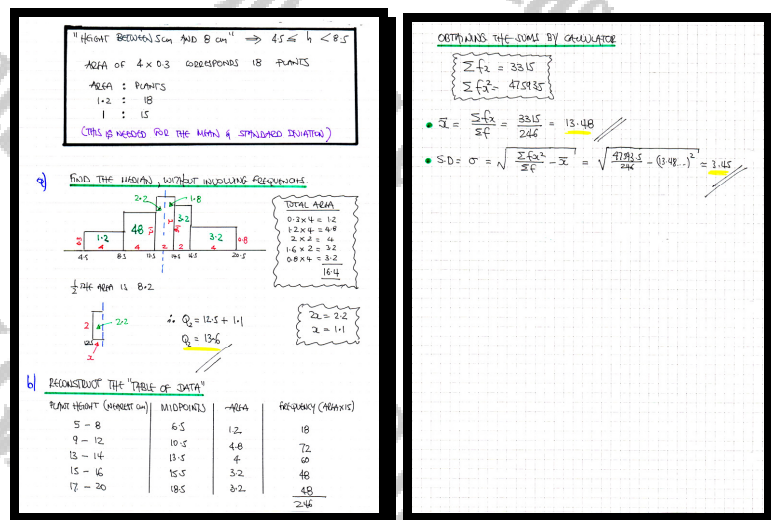 "HEIGHT BETWEEN 5cm AND 8 cm" ⇒ 4.5 ≤ h < 8.5
AREA OF 4 × 0.3 CORRESPONDS 18 PLANTS
AREA : PLANTS
1.2 : 18
1 : 15
(THIS IS NEEDED FOR THE MEAN & STANDARD DEVIATION)
a) FIND THE MEDIAN, WITHOUT INVOLVING FREQUENCIES
2.2 1.8
0.3 1.2 4.8 3.2 3.2 0.8
4 4 2 2 4
4.5 8.5 12.5 14.5 16.5 20.5
TOTAL AREA
0.3×4 = 1.2
1.2×4 = 4.8
2 × 2 = 4
1.6 × 2 = 3.2
0.8×4 = 3.2
16.4
1/2 THE AREA IS 8.2
2 2.2
12.5
x
∴ Q₂ = 12.5 + 1.1
Q₂ = 13.6
2x = 2.2
x = 1.1
b) RECONSTRUCT THE "TABLE OF DATA"
PLANT HEIGHT (NEAREST cm) MIDPOINTS AREA FREQUENCY (AREA×15)
5 - 8 6.5 1.2 18
9 - 12 10.5 4.8 72
13 - 14 13.5 4 60
15 - 16 15.5 3.2 48
17 - 20 18.5 3.2 48
246
OBTAINING THE SUMS BY CALCULATOR
Σfx = 3315
Σfx² = 47593.5
x̄ = Σfx/Σf = 3315/246 = 13.48
S.D = σ = √(Σfx²/Σf - x̄²) = √(47593.5/246 - (13.48...)²) = 3.45